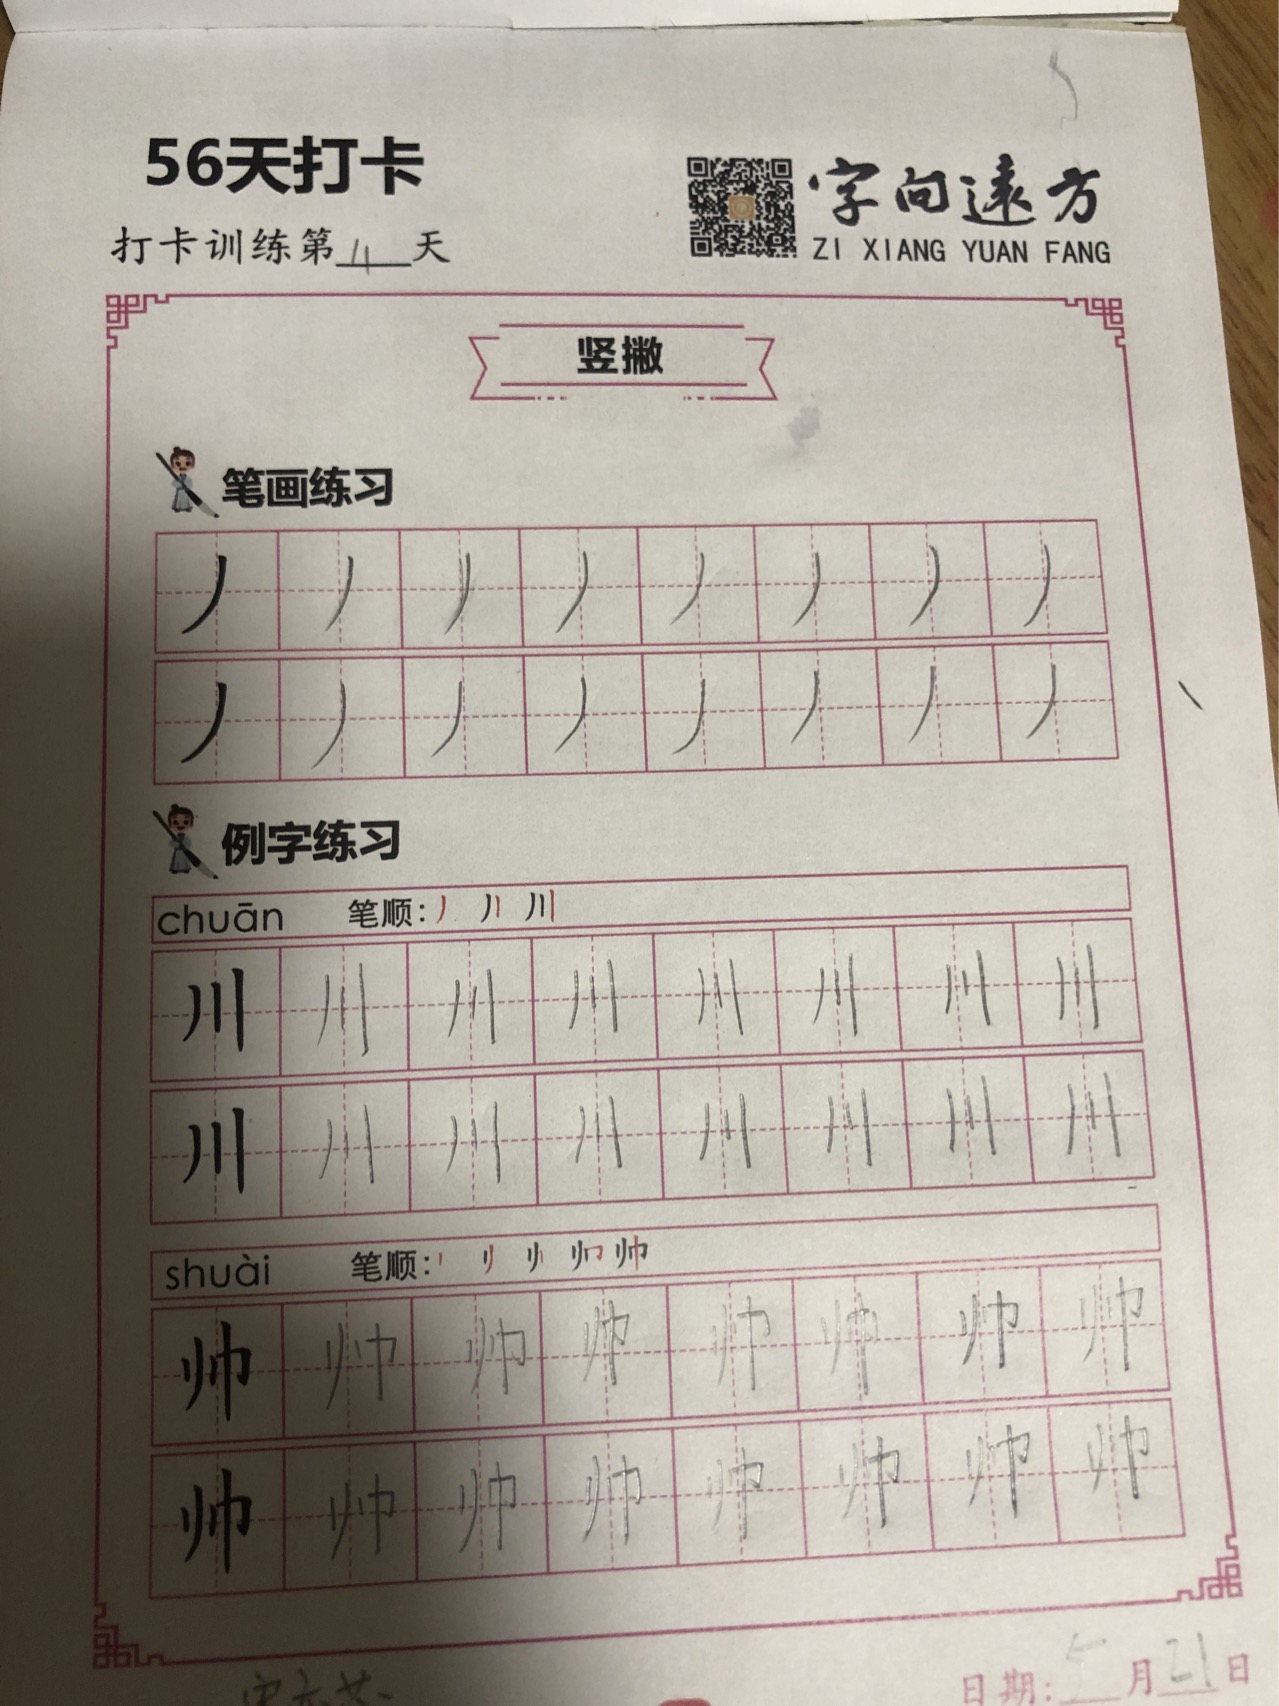 56天打卡
字向远方
ZI XIANG YUAN FANG
打卡训练第 天
竖撇
笔画练习
丿丿丿丿丿丿丿丿
丿丿丿丿丿丿丿丿
例字练习
chuān 笔顺:
川川川川川川川川
川川川川川川川川
shuài 笔顺:
帅帅帅帅帅帅帅帅
帅帅帅帅帅帅帅帅
日期:5月21日